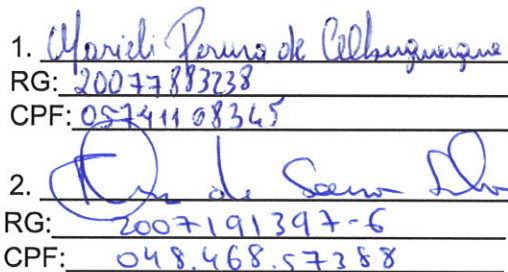 1. Marieli Pereira de Albuquerque
RG: 20077883238
CPF: 05741108345
2. de Sousa Silva
RG: 2007191397-6
CPF: 048.468.57388